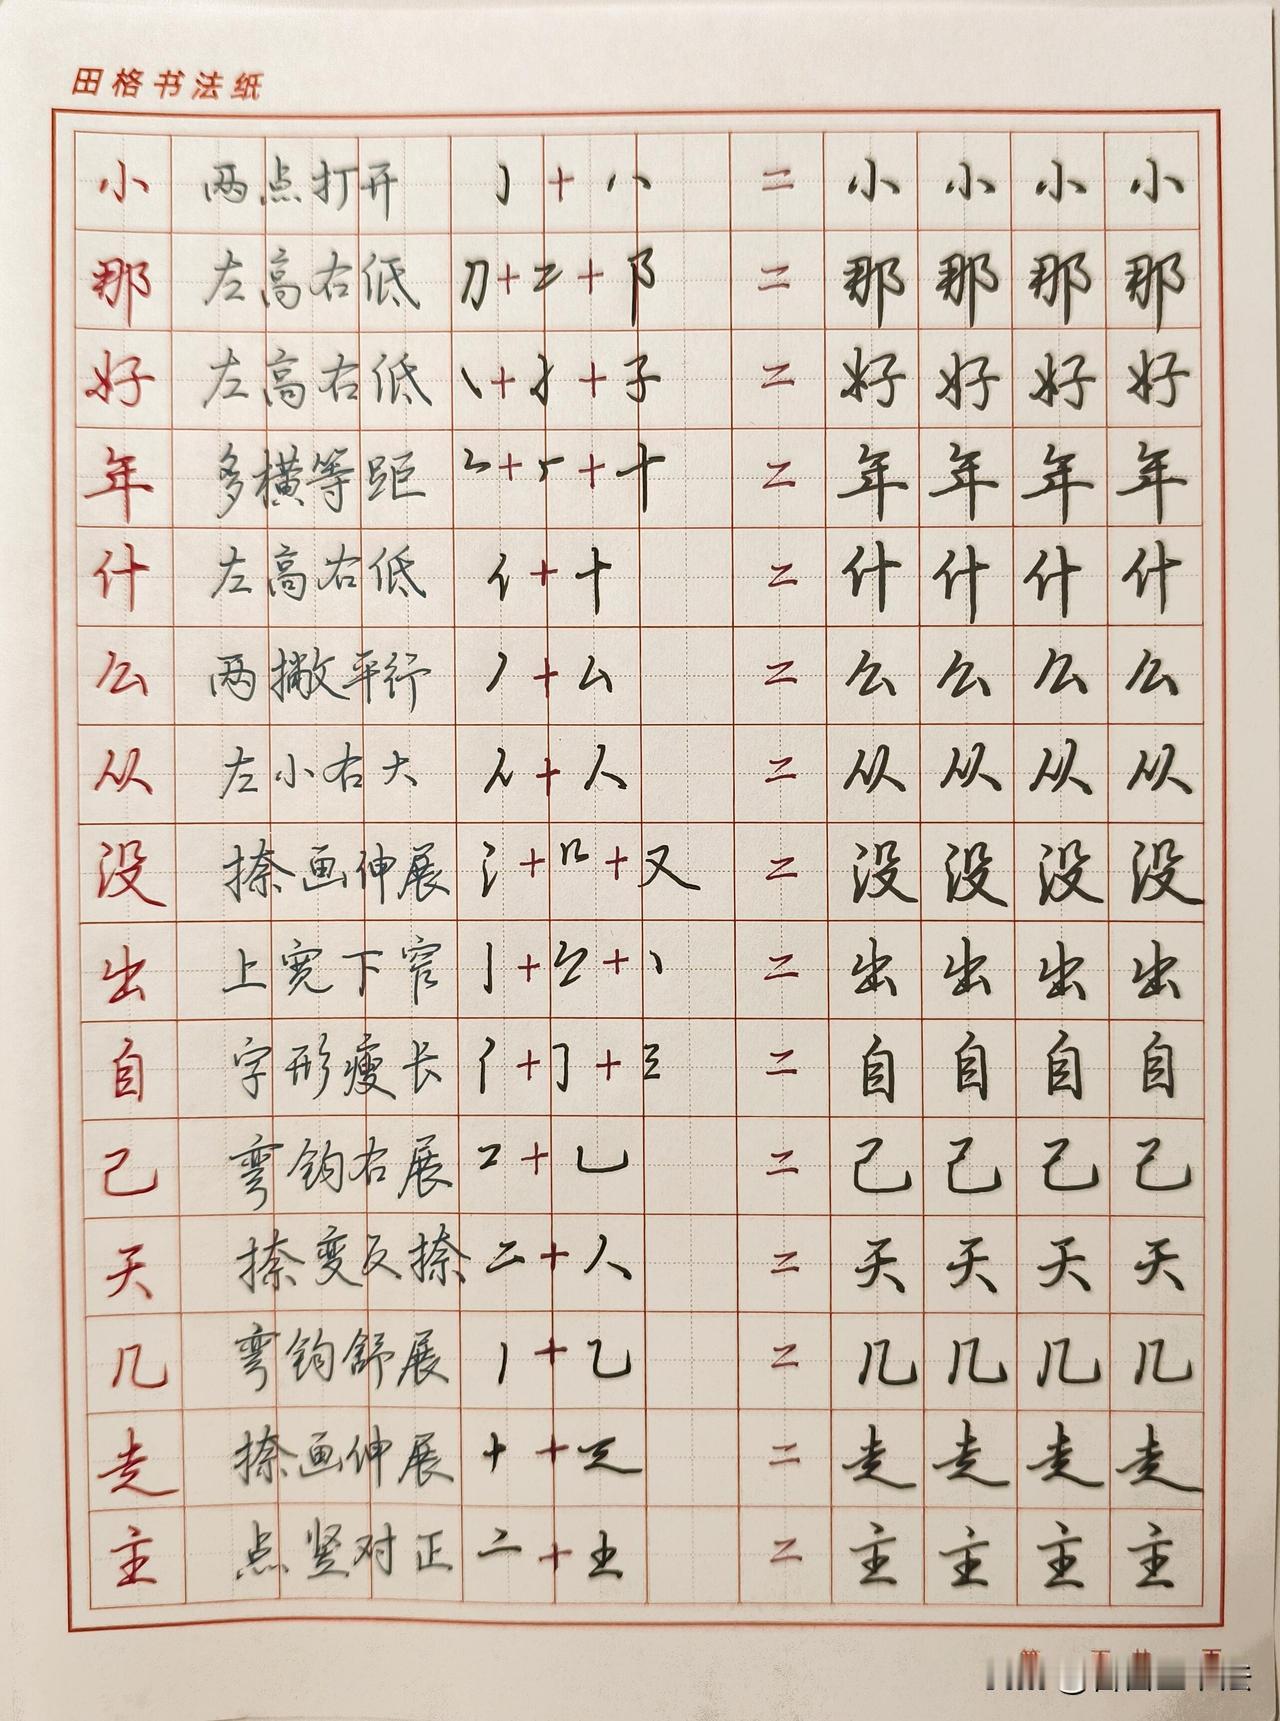 田格书法纸
小 两点打开 亅 + 八 = 小 小 小 小
那 左高右低 刀 + 二 + 阝 = 那 那 那 那
好 左高右低 + + 子 = 好 好 好 好
年 多横等距 + + 十 = 年 年 年 年
什 左高右低 亻 + 十 = 什 什 什 什
么 两撇平行 丿 + 厶 = 么 么 么 么
从 左小右大 人 + 人 = 从 从 从 从
没 捺画伸展 氵 + 几 + 又 = 没 没 没 没
出 上宽下窄 丨 + + 丶 = 出 出 出 出
自 字形瘦长 亻 + ㇆ + 三 = 自 自 自 自
己 弯钩右展 コ + 乚 = 己 己 己 己
天 捺变反捺 二 + 人 = 天 天 天 天
几 弯钩舒展 丿 + 乙 = 几 几 几 几
走 捺画伸展 十 + 疋 = 走 走 走 走
主 点竖对正 亠 + 土 = 主 主 主 主
第 页 共 页